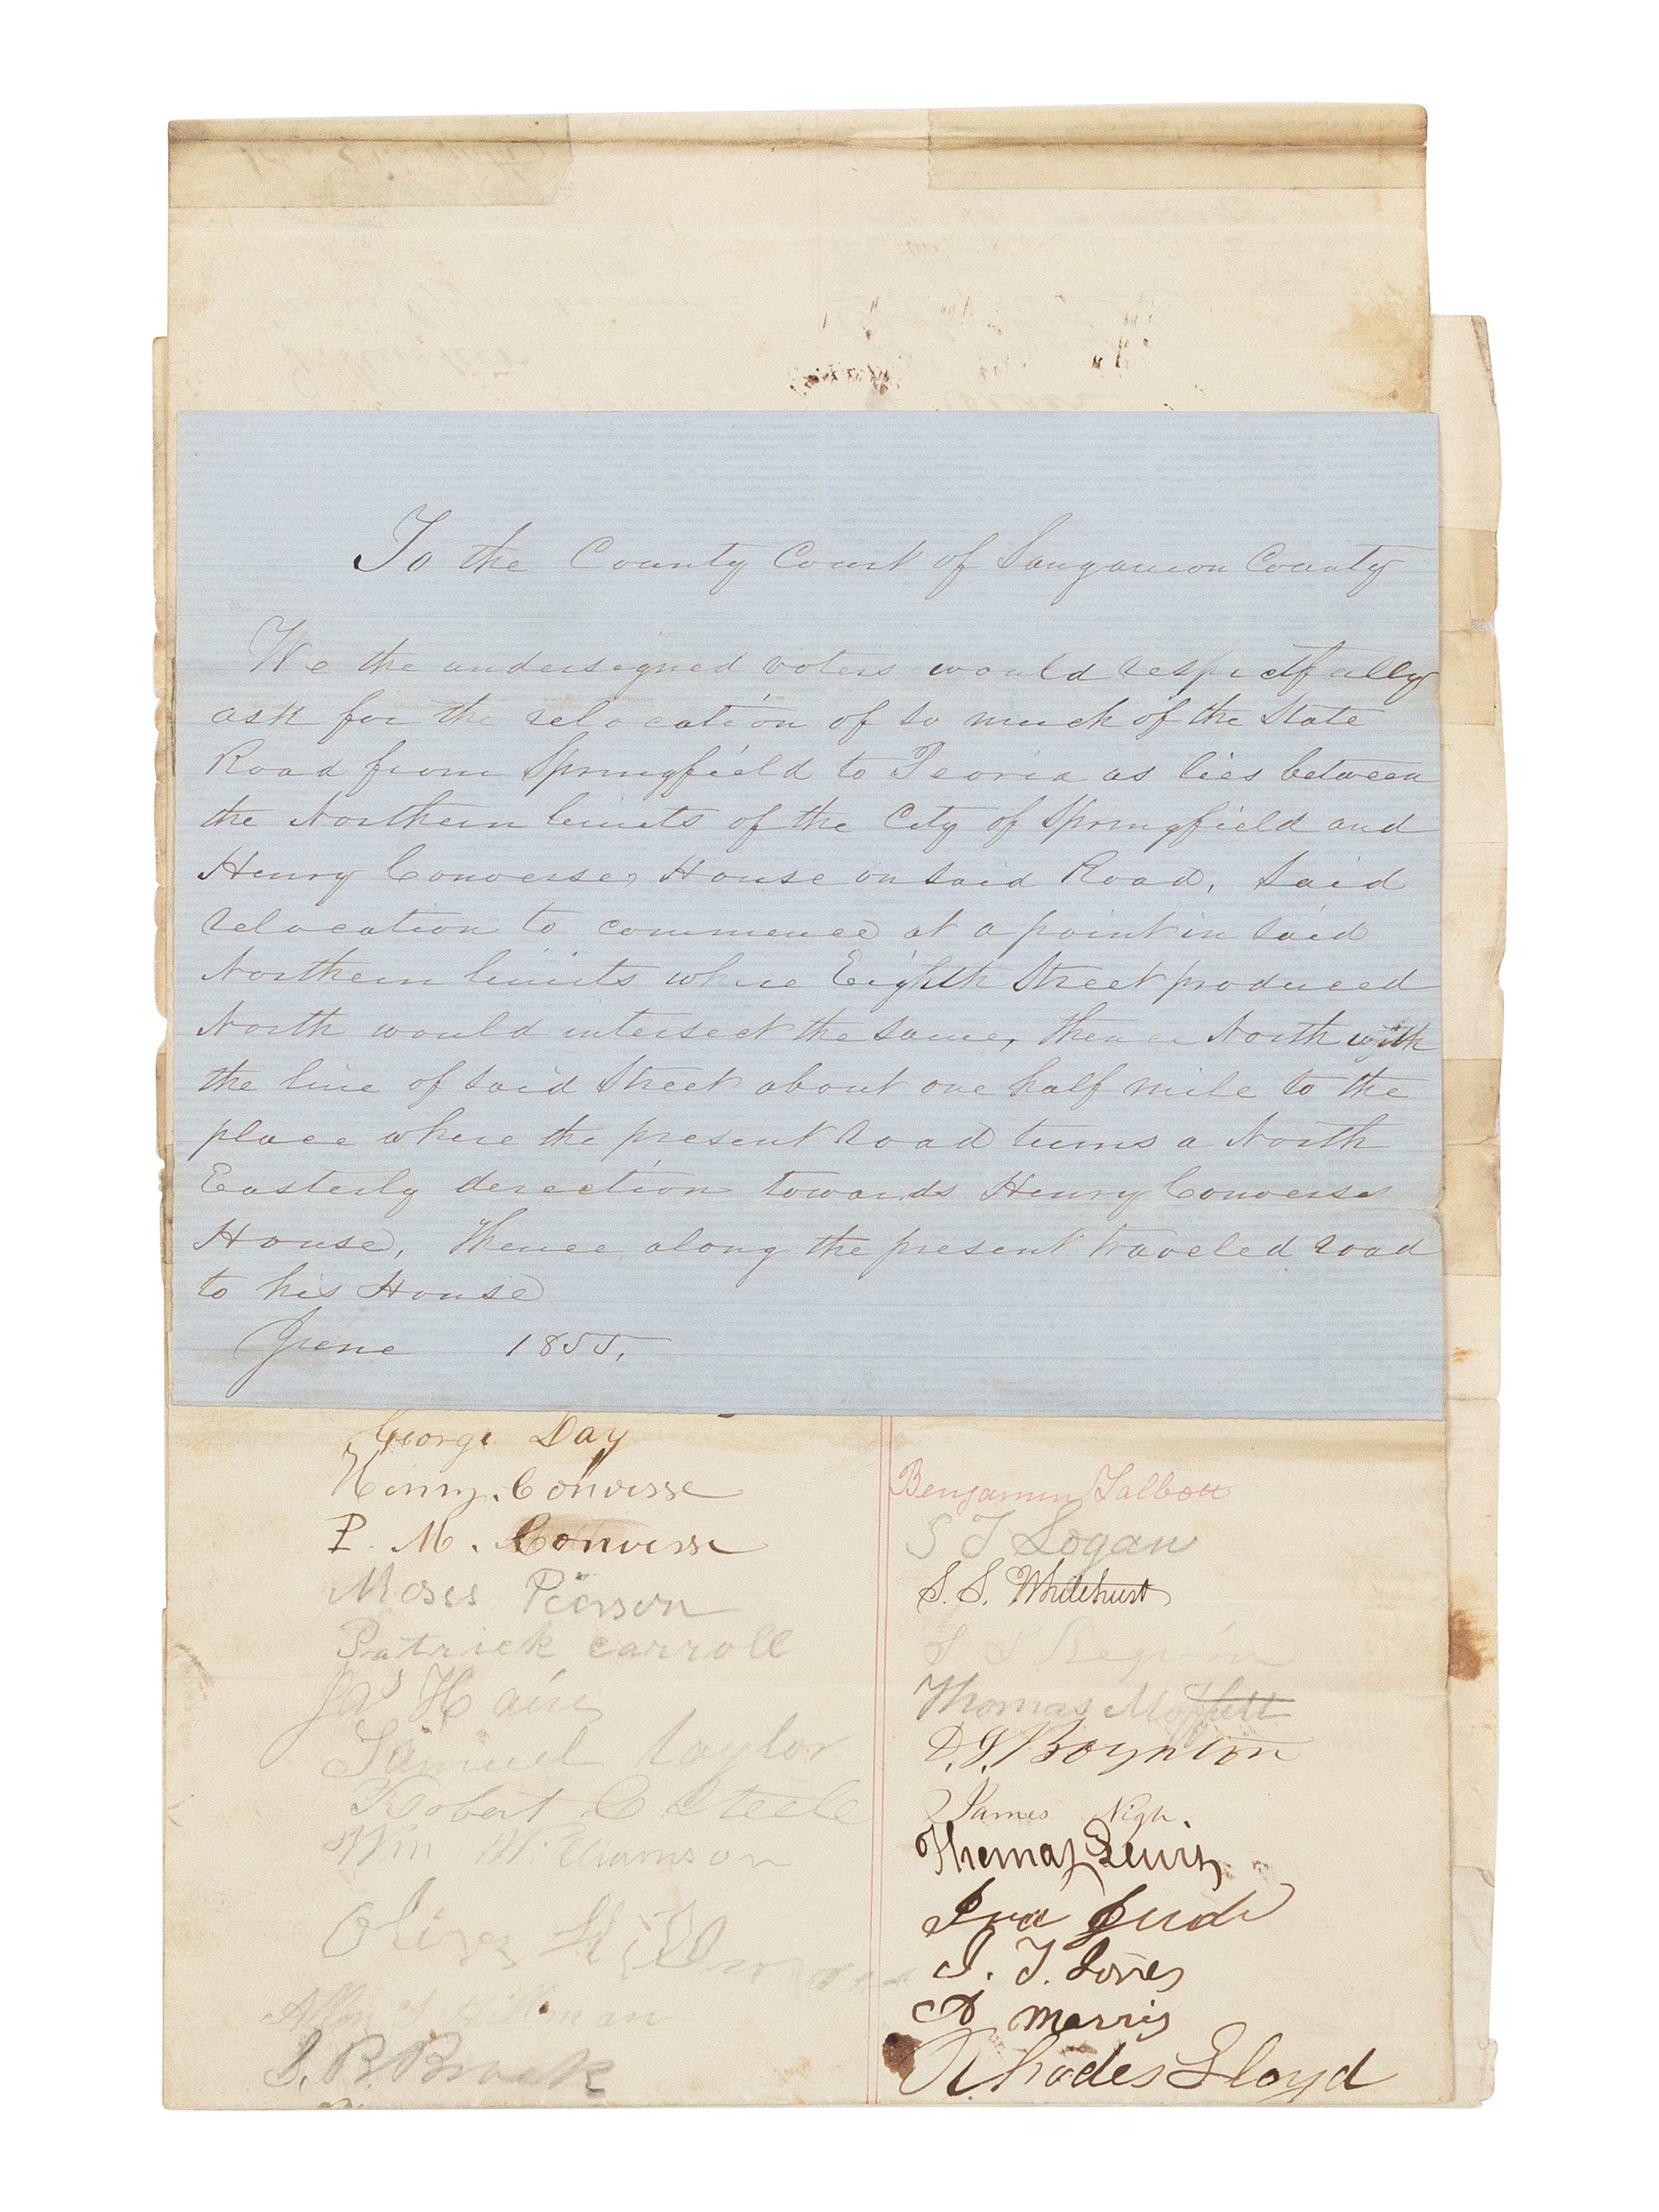 To the County Court of Sangamon County
We the undersigned voters would respectfully
ask for the relocation of so much of the State
Road from Springfield to Peoria as lies between
the Northern limits of the City of Springfield and
Henry Converses House on said Road, said
relocation to commence at a point in said
Northern limits where Eighth Street produced
North would intersect the same, thence North with
the line of said Street about one half mile to the
place where the present road turns a North
Easterly derection towards Henry Converses
House, thence along the present traveled road
to his House
June 1855,
George Day
Henry. Converse
P. M. Converse
Moses Pierson
Patrick carroll
Jas
Samuel Taylor
Robert C Steele
Wm Williamson
Oliver Hillman
Hillman
Benjamin Talbott
S T Logan
S. S. Whitehurst
Thomas Moffett
Boynton
James Nigh.
Thomas Lewis
Ira Jude
J. T. Jones
A Morris
Rhodes Lloyd